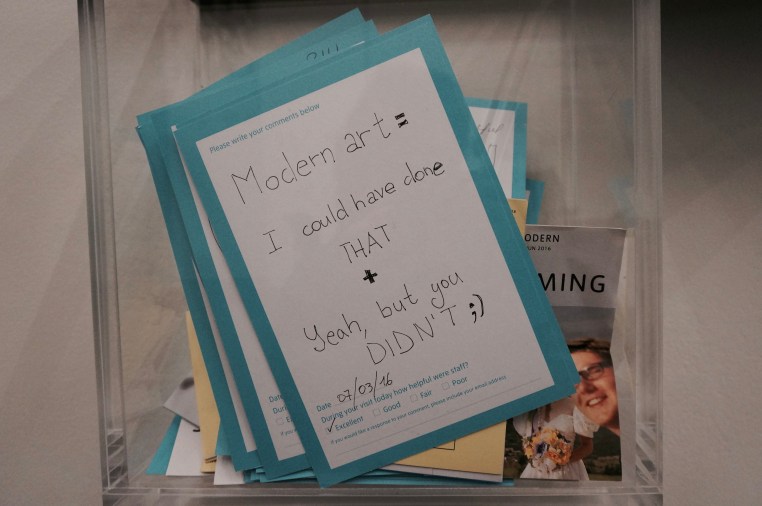 Please write your comments below
Modern art =
I could have done
THAT
+
Yeah, but you
DIDN'T ;)
Date 07/03/16
During your visit today how helpful were staff?
✓ Excellent Good Fair Poor
If you would like a response to your comment, please include your email address
ODERN
UN 2016
MING